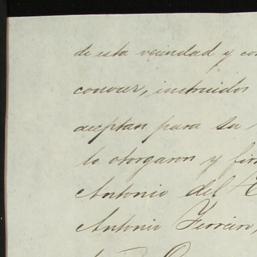 de esta vecindad y co
conocer, instruidos
aceptan para su
lo otorgaron y fir
Antonio del C
Antonio Ferreiro,